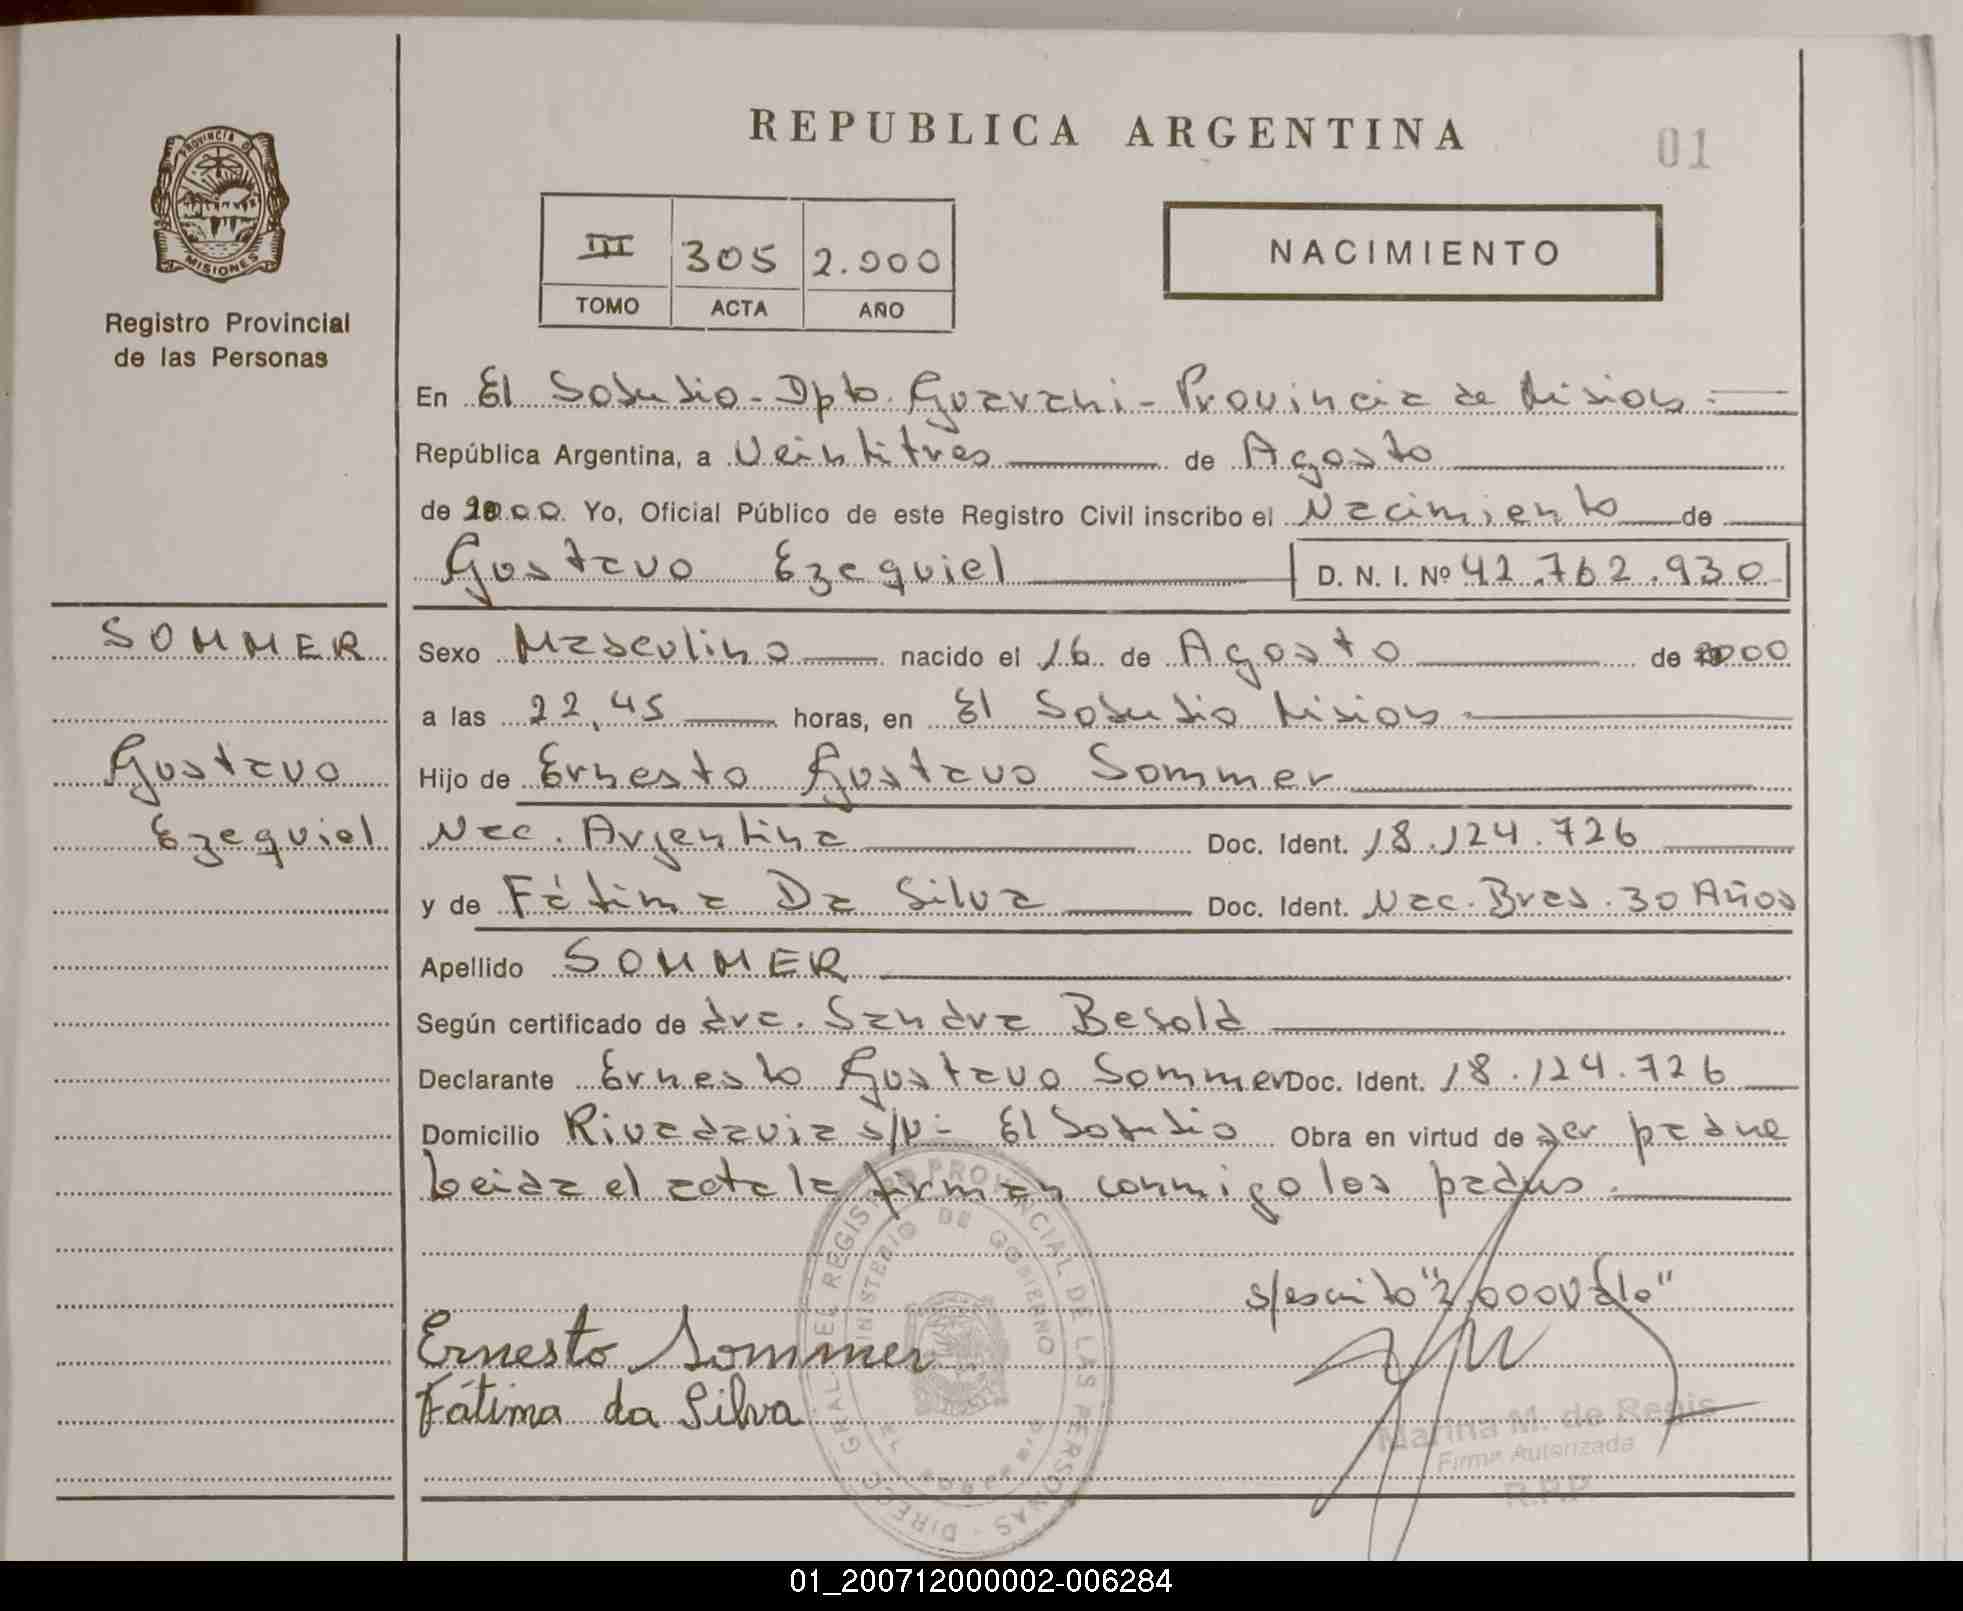 REPUBLICA ARGENTINA
01
PROVINCIA D
MISIONES
Registro Provincial
de las Personas
III 305 2.000
TOMO ACTA AÑO
NACIMIENTO
En El Soberbio - Dpto. Guarani - Provincia de Misiones
República Argentina, a Veintitres de Agosto
de 2000 Yo, Oficial Público de este Registro Civil inscribo el Nacimiento de
Gustavo Ezequiel D. N. I. Nº 42.762.930
SOMMER
Gustavo
Ezequiel
Sexo Masculino nacido el 16 de Agosto de 2000
a las 22,45 horas, en El Soberbio Misiones
Hijo de Ernesto Gustavo Sommer
Nac. Argentina Doc. Ident. 18.124.726
y de Fátima Da Silva Doc. Ident. Nac. Bras. 30 Años
Apellido SOMMER
Según certificado de dra. Sandra Besold
Declarante Ernesto Gustavo Sommer Doc. Ident. 18.124.726
Domicilio Rivadavia s/n - El Soberbio Obra en virtud de ser padre
Leida el acta la firman conmigo los padres.
s/escrito "2.000 Vale"
Ernesto Sommer
Fátima da Silva
DIRECC. GRAL. DEL REGISTRO PROVINCIAL DE LAS PERSONAS
MINISTERIO DE GOBIERNO
Marina M. de Regis
Firma Autorizada
R.P.P
01_200712000002-006284